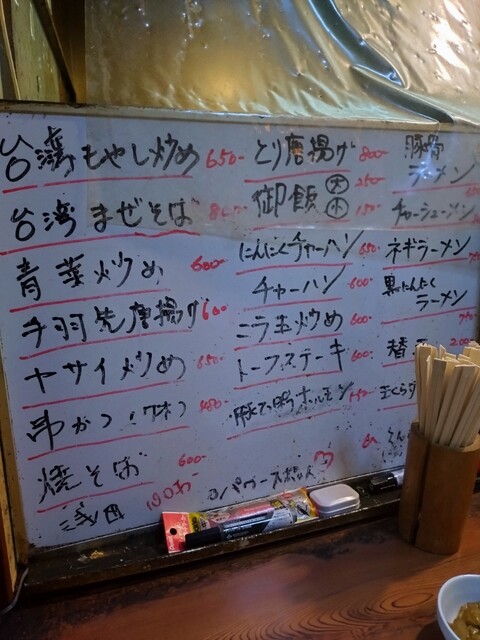 台湾もやし炒め 650-
台湾まぜそば
青菜炒め 600-
手羽先唐揚げ 600
ヤサイ炒め 650-
串かつ
焼そば 600-
浅田
とり唐揚げ 800-
御飯 大 250-
小 150
にんにくチャーハン 650
チャーハン 600
ニラ玉炒め 600
トーフステーキ 600-
ホルモン
豚骨
ラーメン
チャーシューメン
ネギラーメン
黒にんにく
ラーメン
替
200
パワースポット